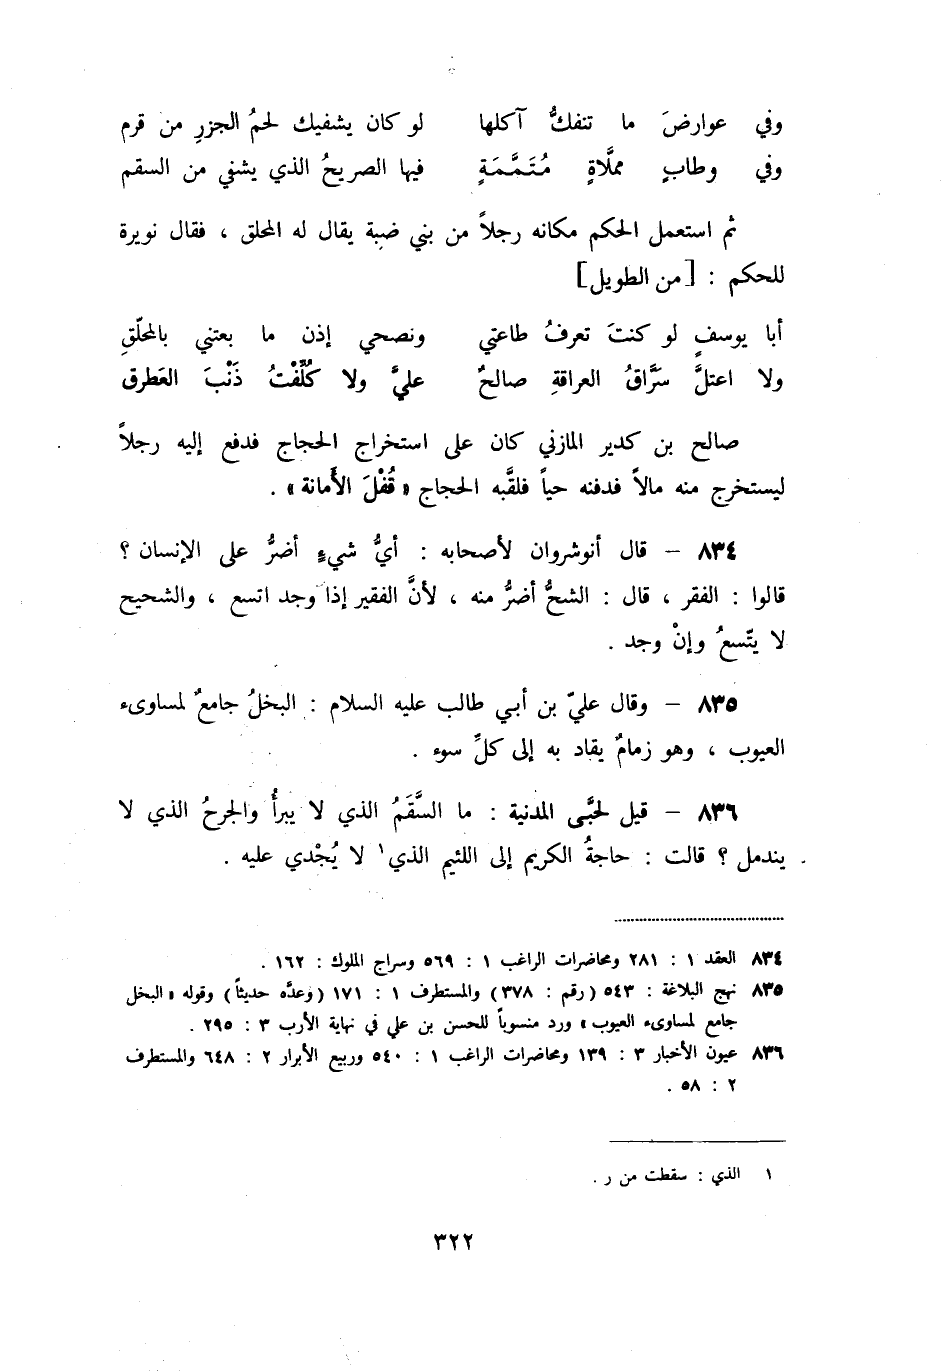 وفي عوارضَ ما تنفكُّ آكلها لو كان يشفيك لحمُ الجزرِ من قرم
وفي وطابٍ مملَّاةٍ مُتَمَّمَةٍ فيها الصريحُ الذي يشفي من السقم
ثم استعمل الحكم مكانه رجلاً من بني ضبة يقال له المحلق ، فقال نويرة
للحكم : [من الطويل]
أبا يوسفٍ لو كنتَ تعرفُ طاعتي ونصحي إذن ما بعتني بالمحلّقِ
ولا اعتلَّ سَرَّاقُ العراقةِ صالحٌ عليَّ ولا كُلِّفْتُ ذَنْبَ العَطرق
صالح بن كدير المازني كان على استخراج الحجاج فدفع إليه رجلاً
ليستخرج منه مالاً فدفنه حياً فلقَّبه الحجاج « قُفْلَ الأمانة » .
٨٣٤ – قال أنوشروان لأصحابه : أيُّ شيءٍ أضرُّ على الإنسان ؟
قالوا : الفقر ، قال : الشحُّ أضرُّ منه ، لأنَّ الفقير إذا وجد اتسع ، والشحيح
لا يتّسعُ وإنْ وجد .
٨٣٥ – وقال عليّ بن أبي طالب عليه السلام : البخلُ جامعٌ لمساوىء
العيوب ، وهو زمامٌ يقاد به إلى كلِّ سوء .
٨٣٦ – قيل لحبَّى المدنية : ما السَّقَمُ الذي لا يبرأُ والجرحُ الذي لا
يندمل ؟ قالت : حاجةُ الكريم إلى اللئيم الذي١ لا يُجْدي عليه .
٨٣٤ العقد ١ : ٢٨١ ومحاضرات الراغب ١ : ٥٦٩ وسراج الملوك : ١٦٢ .
٨٣٥ نهج البلاغة : ٥٤٣ (رقم : ٣٧٨) والمستطرف ١ : ١٧١ (وعدَّه حديثاً) وقوله « البخل
جامع لمساوىء العيوب » ورد منسوباً للحسن بن علي في نهاية الأرب ٣ : ٢٩٥ .
٨٣٦ عيون الأخبار ٣ : ١٣٩ ومحاضرات الراغب ١ : ٥٤٠ وربيع الأبرار ٢ : ٦٤٨ والمستطرف
٢ : ٥٨ .
١ الذي : سقطت من ر .
٣٢٢